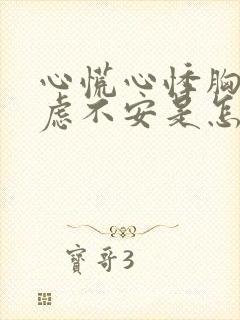 心慌心悸胸
虑不安是怎
寶哥3